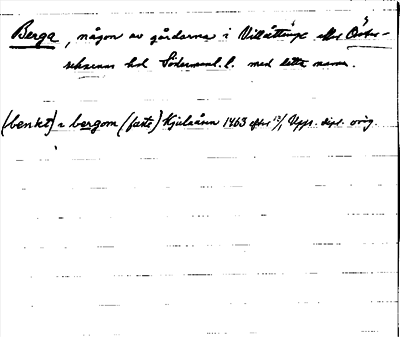 Berga, någon av gårdarna i Villåttinge eller Öster-
rekarne hd Södermanl. l. med detta namn.
(benkt) i bergom (faste) Kjulaåsen 1463 efter 13/1 Upps. dipl. orig.